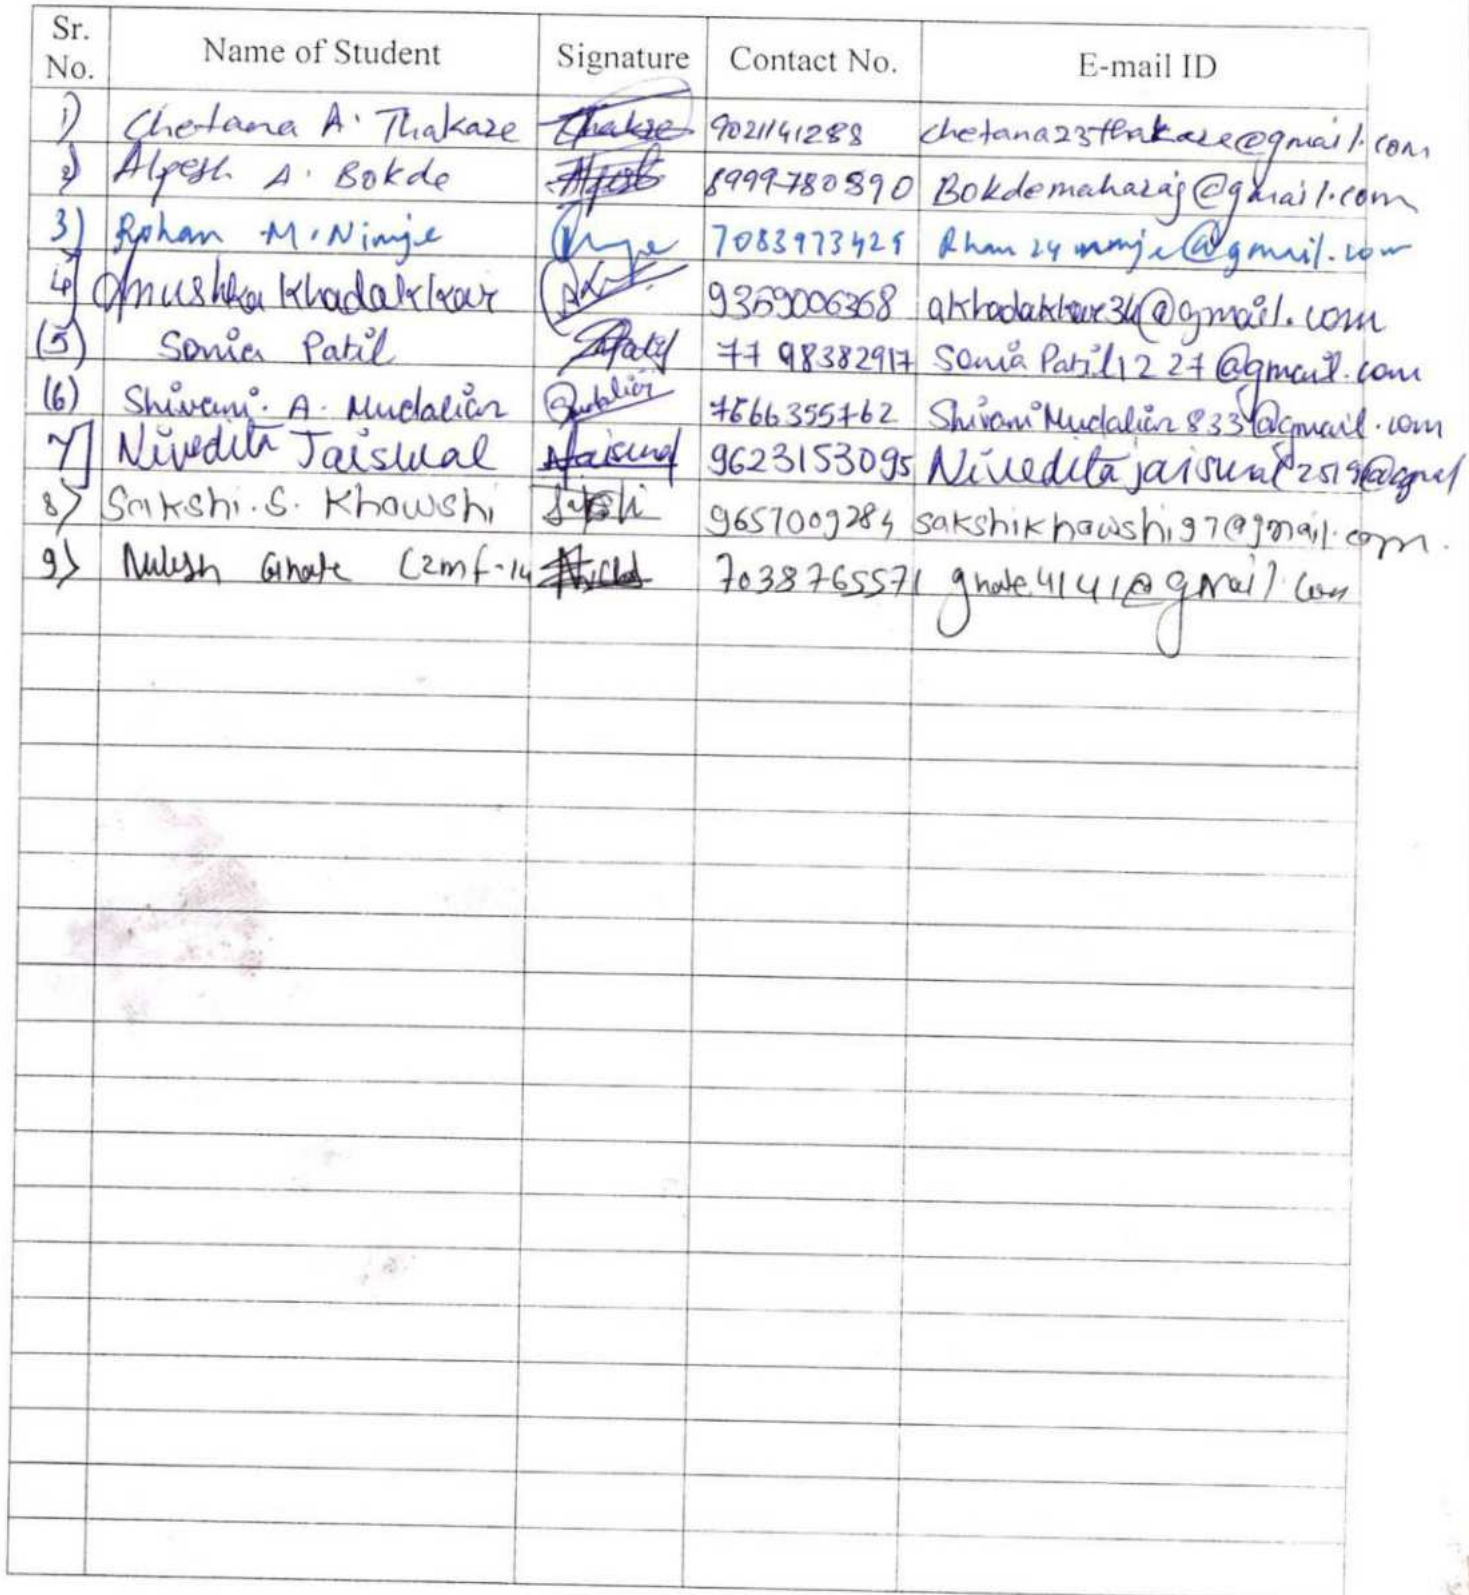 Sr. No. Name of Student Signature Contact No. E-mail ID
1) Chetana A. Thakare Thakre 9021141288 chetana23thakare@gmail.com
2) Alpesh A. Bokde 8999780890 Bokdemaharaj@gmail.com
3) Rohan M. Nimje 7083973429
4] Anushka Khadakkar 9359006368 akhadakkar34@gmail.com
(5) Sonia Patil Patil 7798382917 SoniaPatil1227@gmail.com
(6) Shivani. A. Mudaliar Mudaliar 7666355762 ShivaniMudaliar833@gmail.com
7] Nivedita Jaiswal 9623153095 Niveditajaiswal2519@gmail
8) Sakshi. S. Khawshi 9657009284 sakshikhawshi97@gmail.com.
9) Nilesh Ghate (2mf-14 7038765571 ghate4141@gmail.com